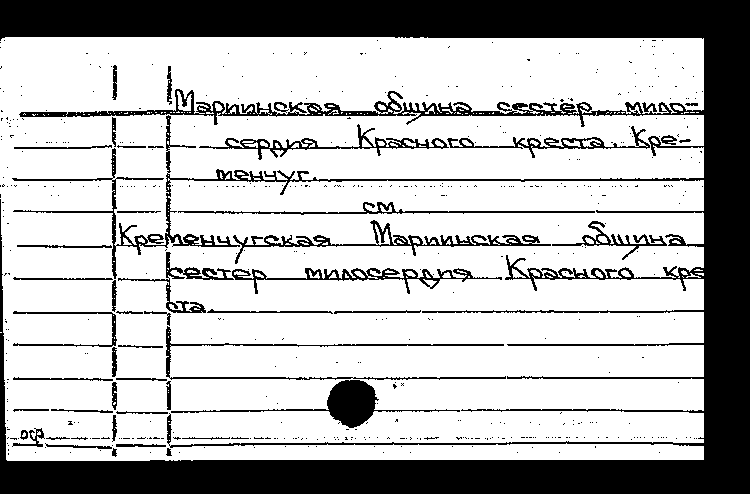 Мариинская община сестёр мило-
сердия Красного креста. Кре-
менчуг.
см.
Кременчугская Мариинская община
сестер милосердия Красного кре
ста.